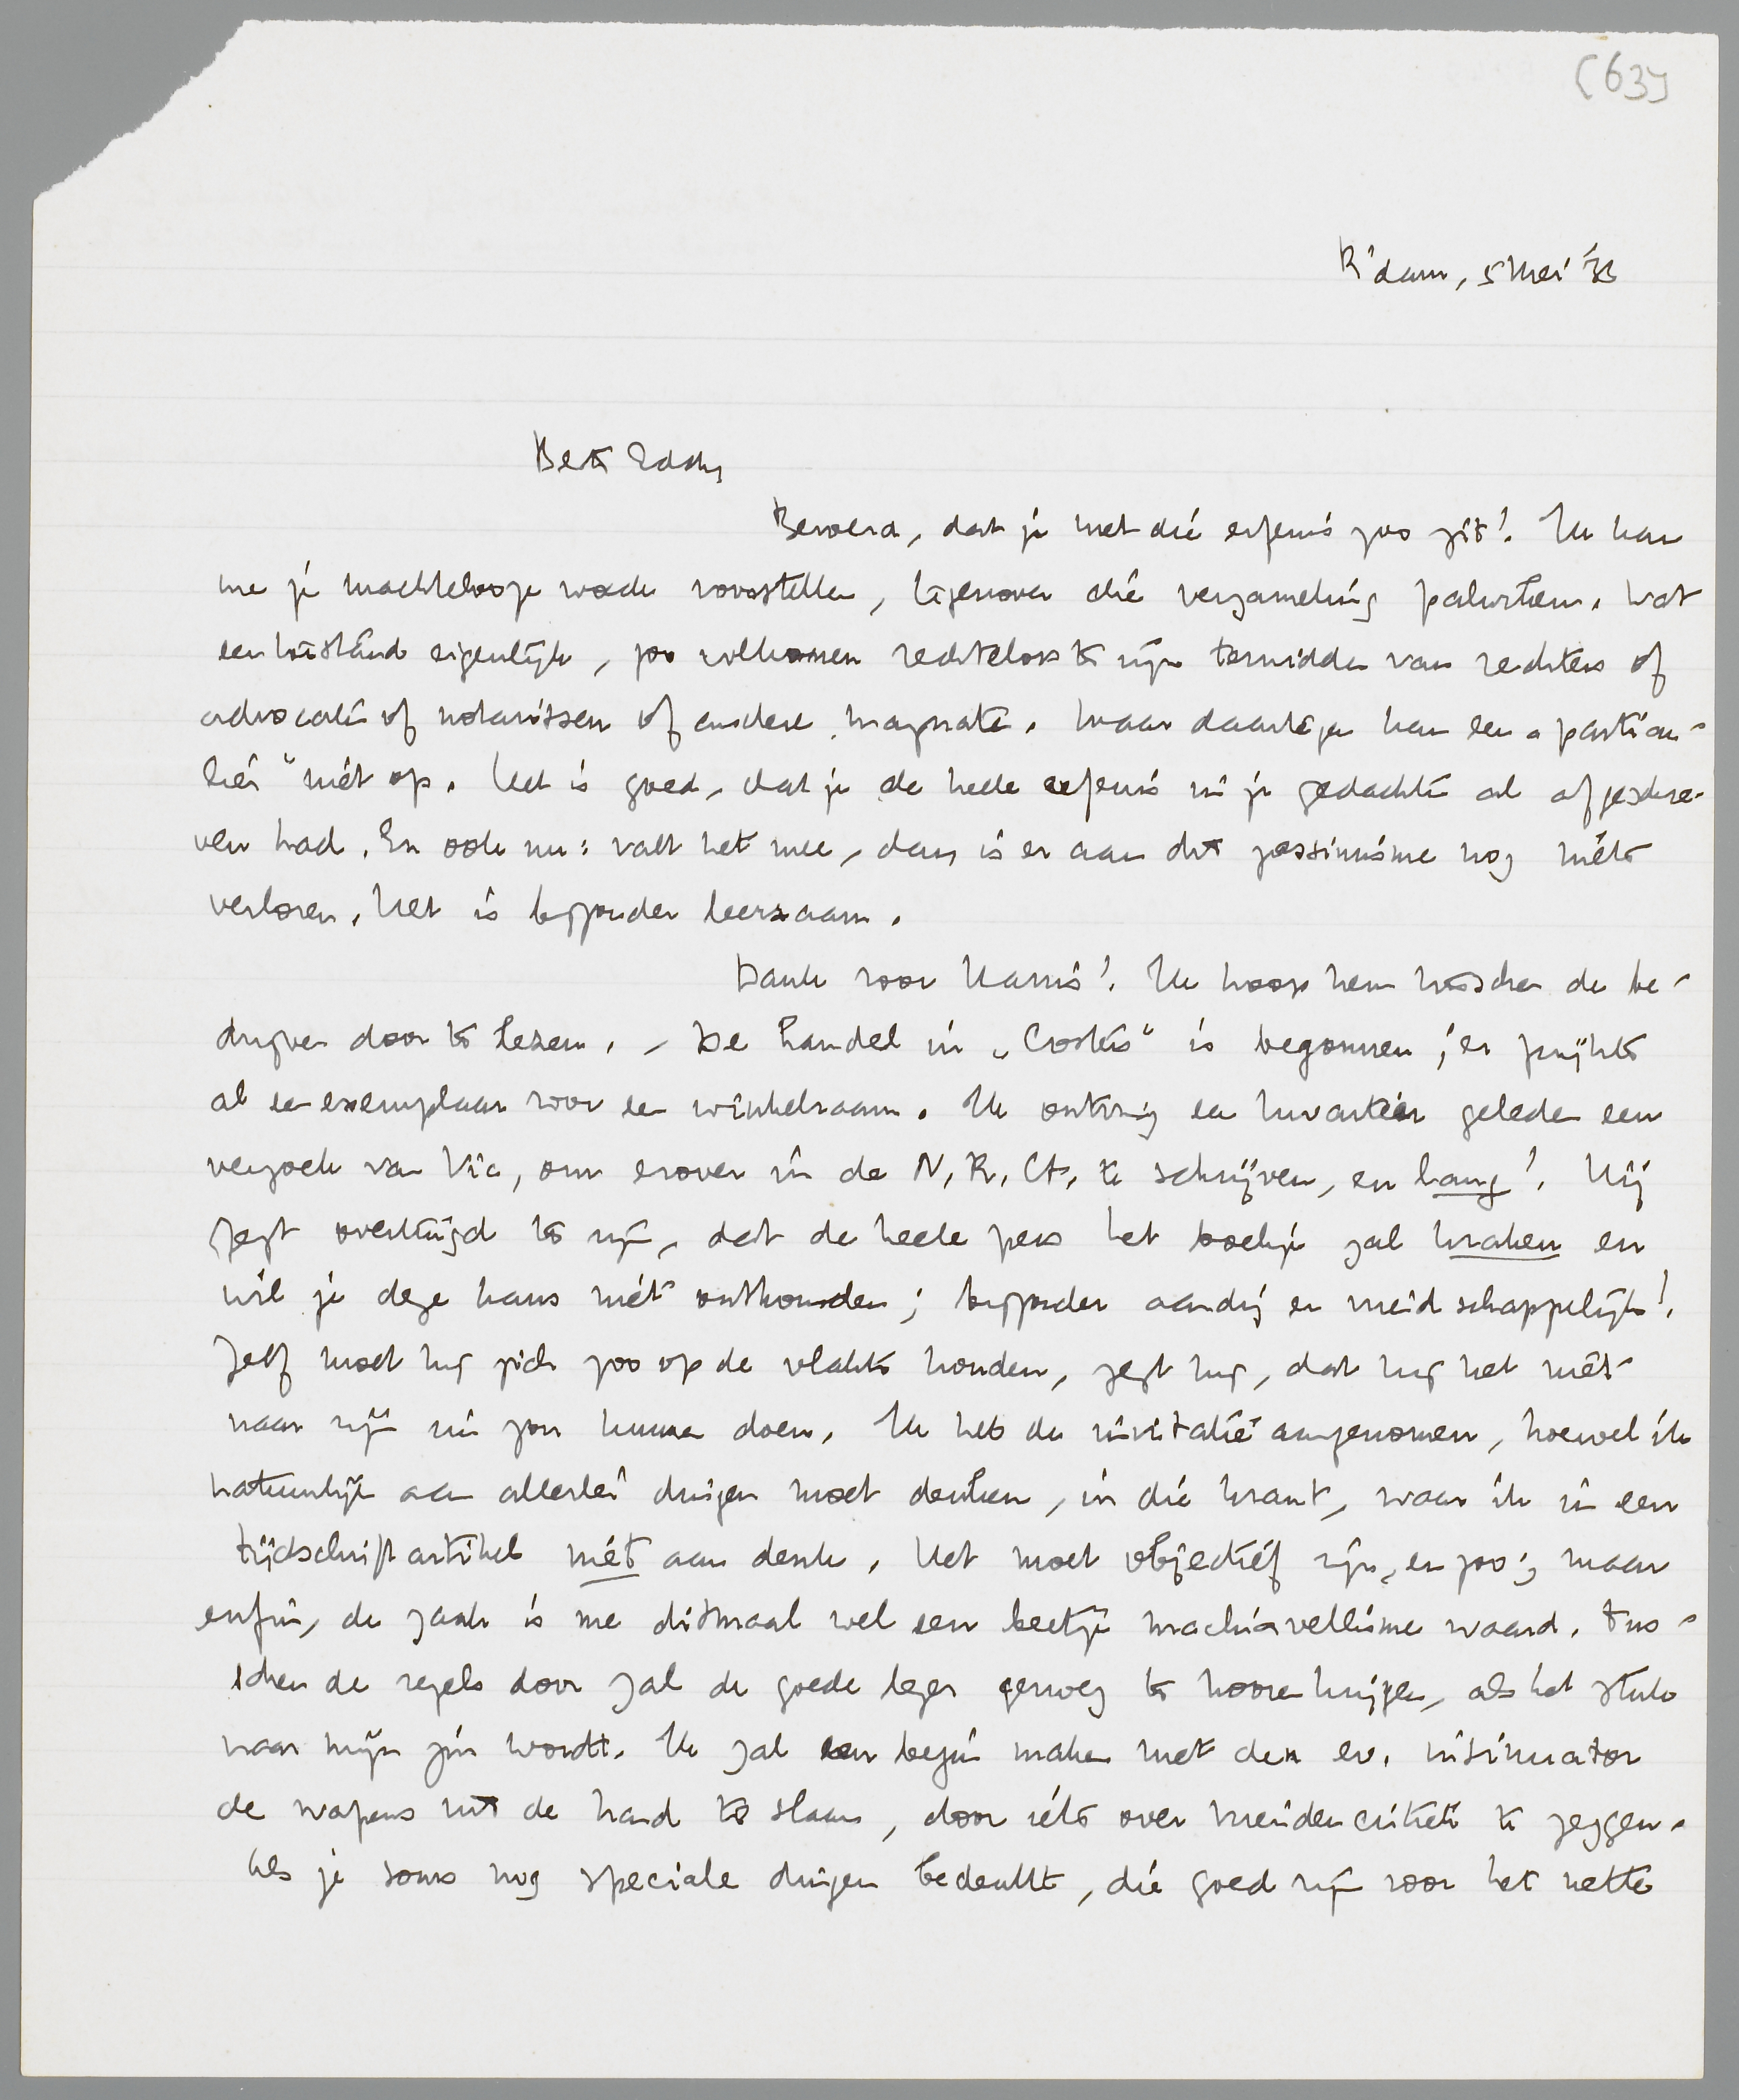 (63)
R'dam, 5 Mei '33
Beste Eddy
Beroerd, dat je met die erfenis zoo zit! Ik kan
me je machtelooze woede voorstellen, tegenover die verzameling palurken. Wat
een toestand eigenlijk, zoo volkomen rechteloos te zijn temidden van rechters of
advocaten of notarissen of andere magnaten. Maar daartegen kan een „particu-
lier" niet op. Het is goed, dat je de heele erfenis in je gedachten al afgeschre-
ven had. En ook nu: valt het mee, dan is er aan dit pessimisme nog niets
verloren. Het is bijzonder leerzaam.
Dank voor Harris! Ik hoop hem tusschen de be-
drijven door te lezen. - De handel in „Costers" is begonnen; er prijkte
al een exemplaar voor een winkelraam. Ik ontving een kwartier geleden een
verzoek van Vic, om erover in de N.R.Ct. te schrijven, en lang! Hij
zegt overtuigd te zijn, dat de heele pers het boekje zal kraken en
wil je deze kans niet onthouden; bijzonder aardig en vriendschappelijk!
Zelf moet hij zich zoo op de vlakte houden, zegt hij, dat hij het niet
naar zijn zin zou kunnen doen. Ik heb de invitatie aangenomen, hoewel ik
natuurlijk aan allerlei dingen moet denken, in die krant, waar ik in een
tijdschriftartikel niet aan denk. Het moet objectief zijn, en zoo; maar
enfin, de zaak is me ditmaal wel een beetje machiavellisme waard. Tus-
schen de regels door zal de goede lezer genoeg te hooren krijgen, als het stuk
naar mijn zin wordt. Ik zal een begin maken met den ev. insinuator
de wapens uit de hand te slaan, door iets over vriendencritiek te zeggen.
Als je soms nog speciale dingen bedenkt, die goed zijn voor het nette